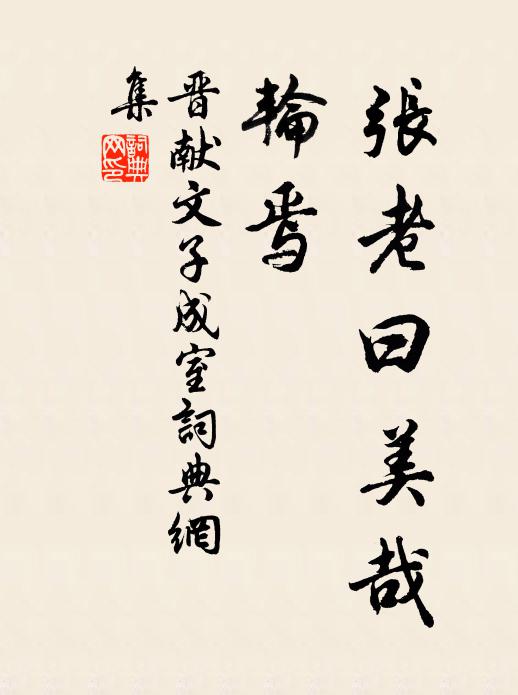 張老曰美哉
輪焉
晋献文子成室詞典網
集
詞典
网印